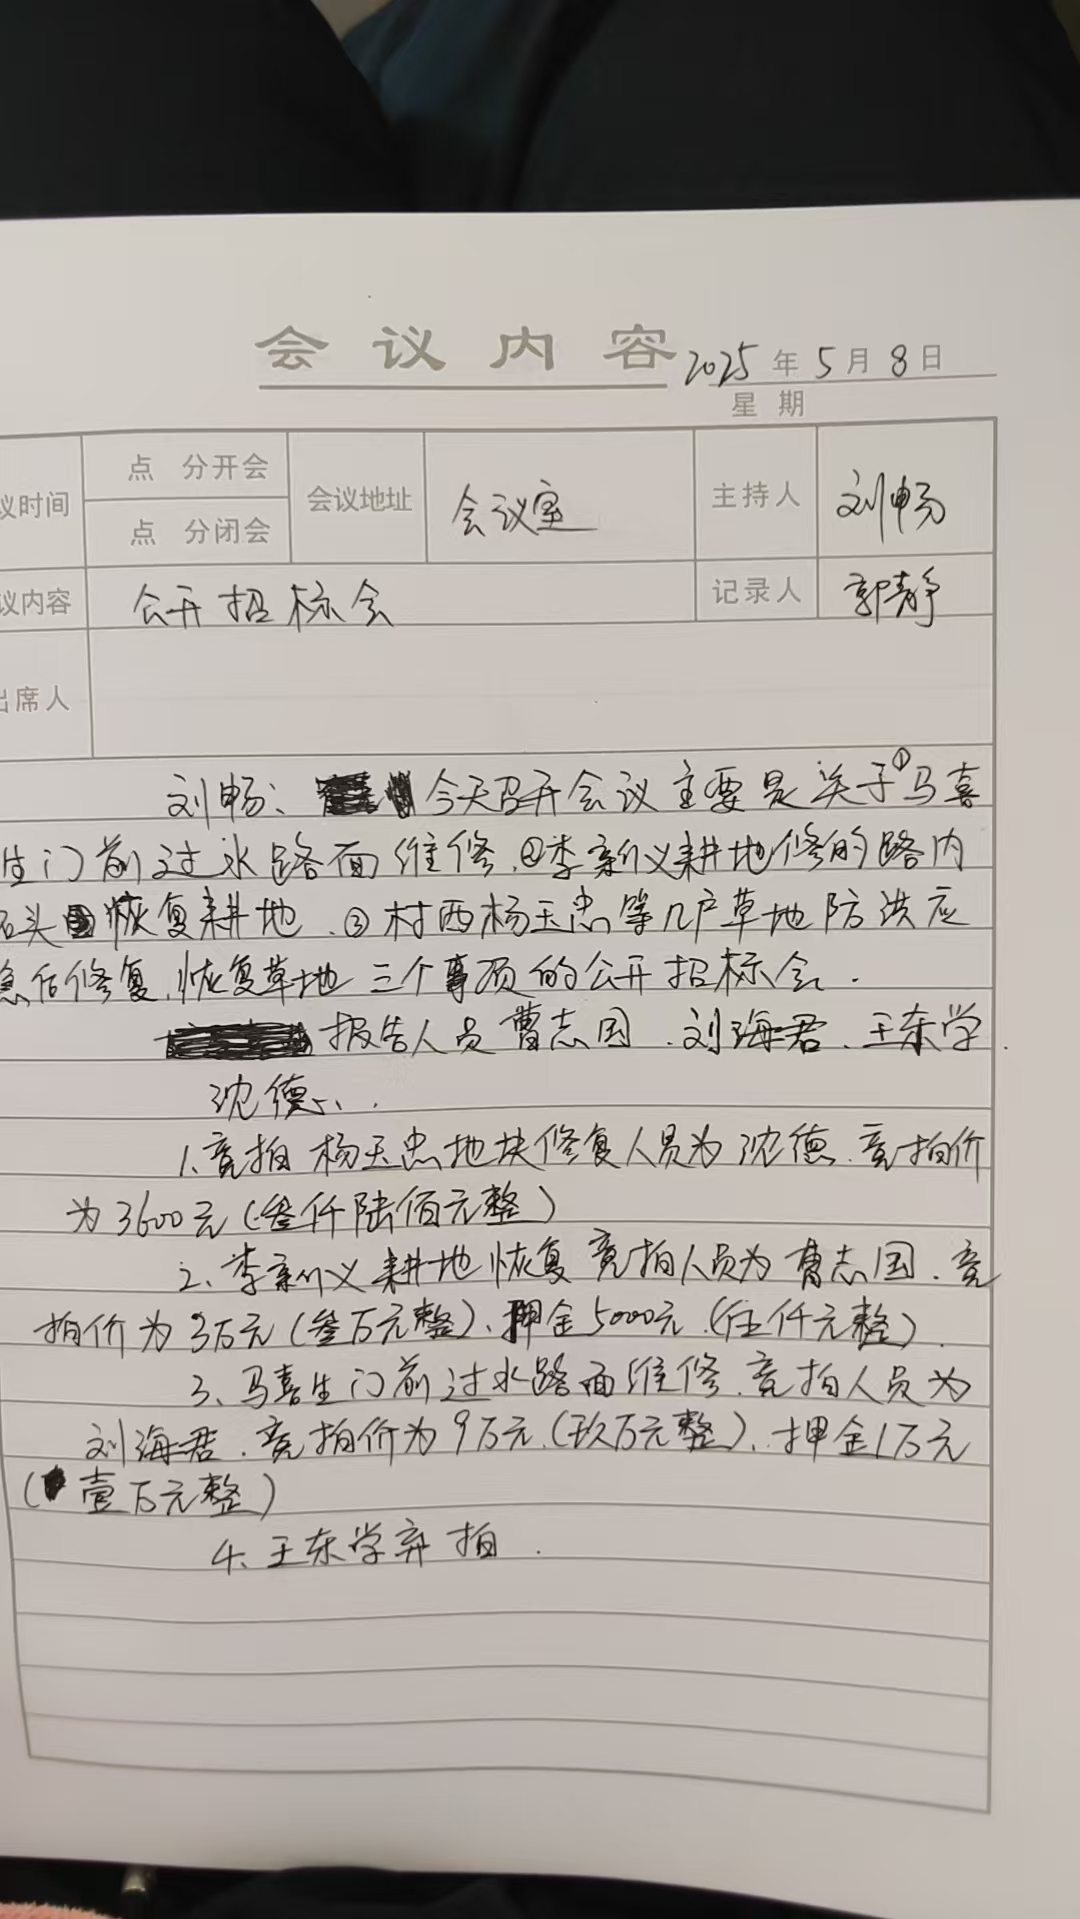 会议内容 2025年5月8日
星期
议时间 点 分开会 会议地址 会议室 主持人 刘畅
点 分闭会
议内容 公开招标会 记录人 郭静
出席人
刘畅：今天召开会议主要是关于①马喜
生门前过水路面维修、②李新义耕地修的路内
石头恢复耕地、③村西杨玉忠等几户草地防洪应
急后修复、恢复草地三个事项的公开招标会.
报告人员曹志国、刘海君、王东学.
沈德、.
1、竞拍杨玉忠地块修复人员为沈德、竞拍价
为3600元(叁仟陆佰元整)
2、李新义耕地恢复竞拍人员为曹志国、竞
拍价为3万元(叁万元整)、押金5000元(伍仟元整).
3、马喜生门前过水路面维修、竞拍人员为
刘海君、竞拍价为9万元(玖万元整)、押金1万元
(壹万元整)
4、王东学弃拍.